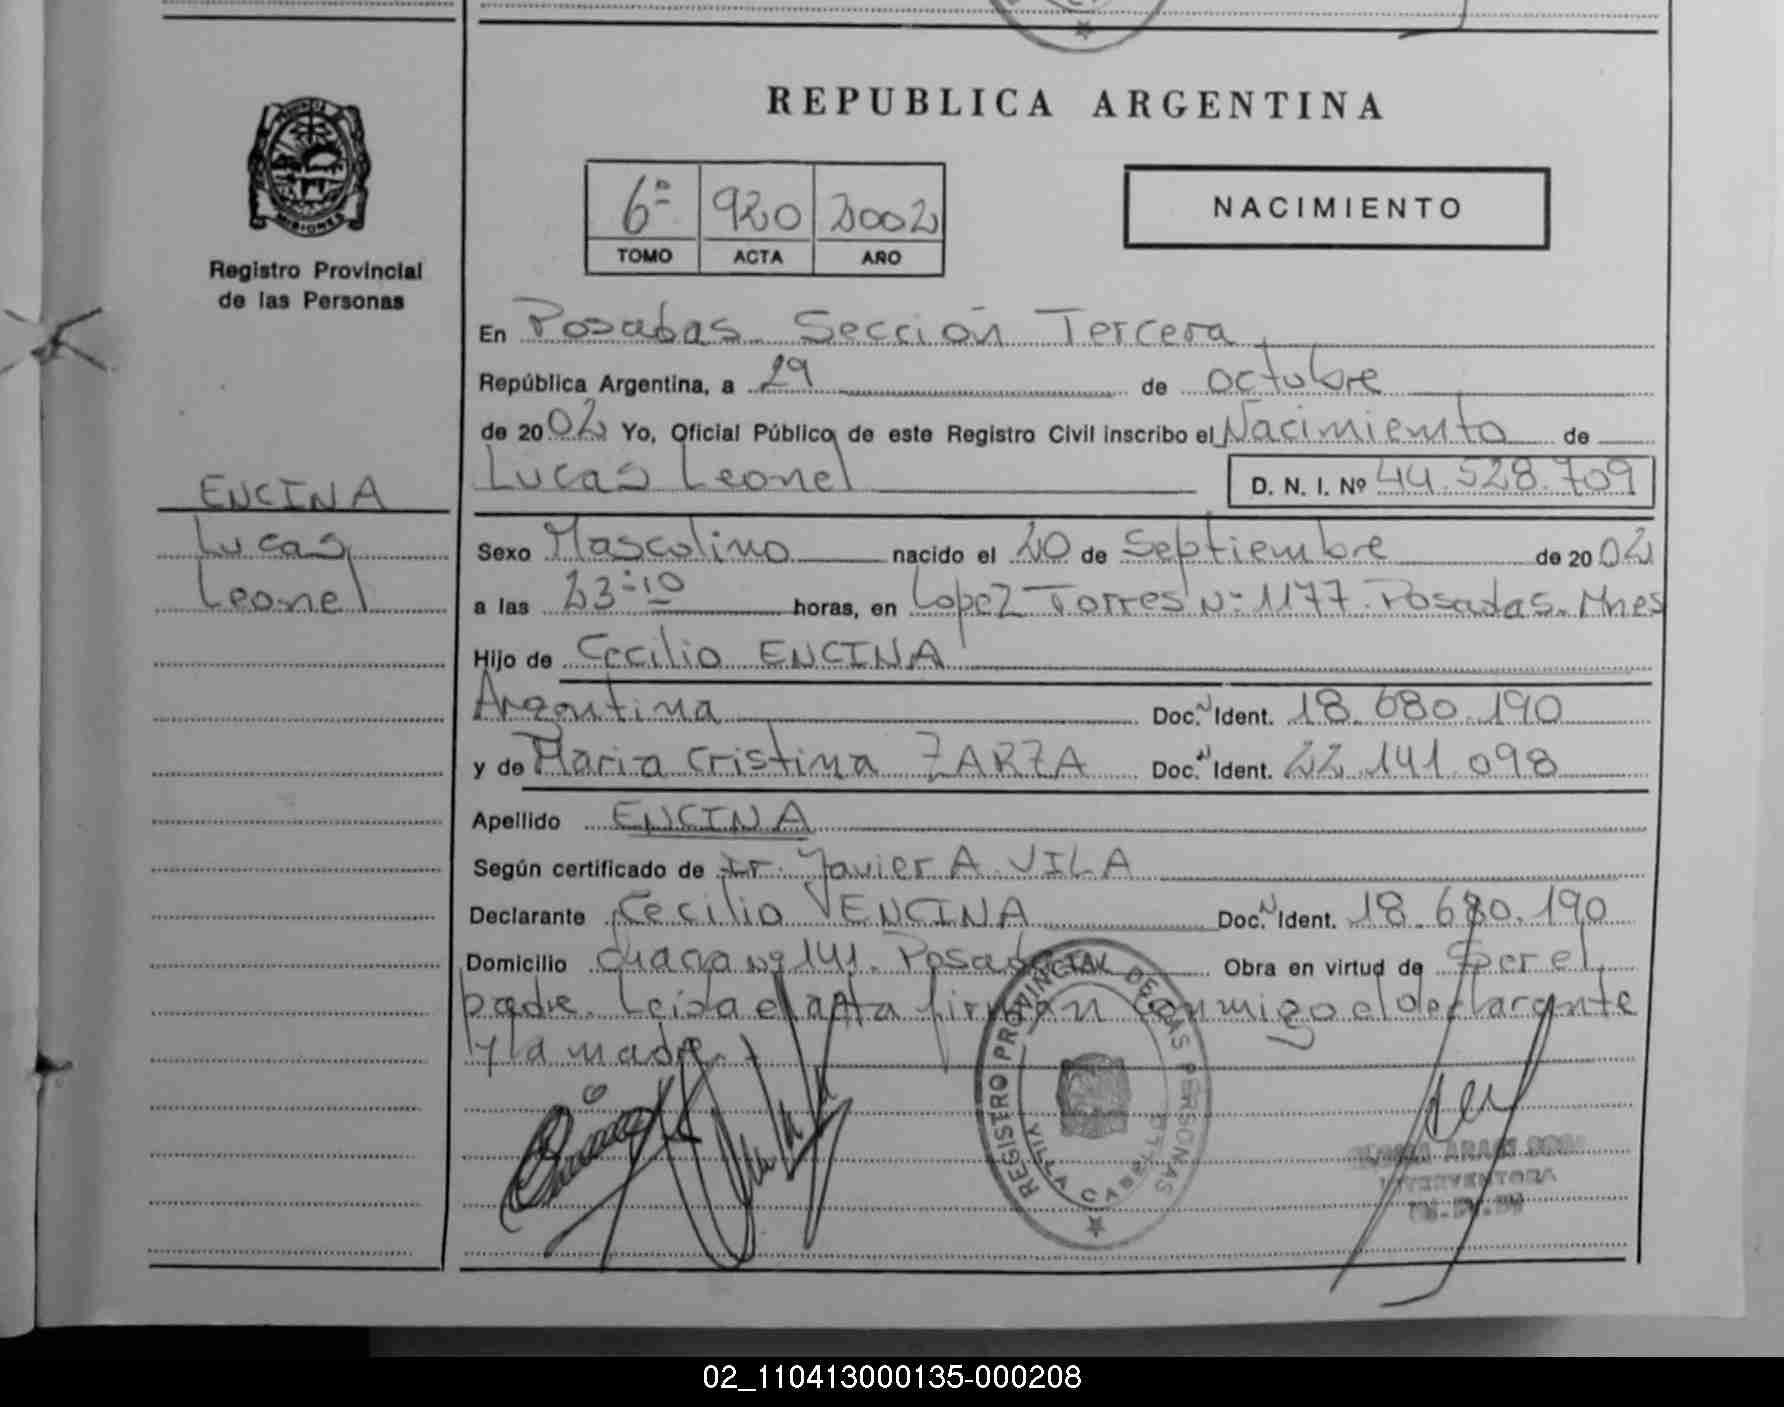 REPUBLICA ARGENTINA
MISIONES
Registro Provincial
de las Personas
6º 920 2002
TOMO ACTA AÑO
NACIMIENTO
En Posadas Sección Tercera
República Argentina, a 29 de octubre
de 2002 Yo, Oficial Público de este Registro Civil inscribo el Nacimiento de
Lucas Leonel D. N. I. Nº 44.528.709
ENCINA
Lucas
Leonel
Sexo Masculino nacido el 20 de Septiembre de 2002
a las 23:10 horas, en Lopez Torres Nº 1177. Posadas. Mnes
Hijo de Cecilio ENCINA
Argentina Doc. Ident. 18.680.190
y de Maria Cristina ZARZA Doc. Ident. 22.141.098
Apellido ENCINA
Según certificado de Dr. Javier A. VILA
Declarante Cecilio ENCINA Doc. Ident. 18.680.190
Domicilio Chacra Nº 141. Posadas Obra en virtud de Ser el
padre. Leida el acta firman conmigo el declarante
y la madre.
REGISTRO PROVINCIAL DE LAS PERSONAS
VILLA CABELLO
INTERVENTORA
02_110413000135-000208